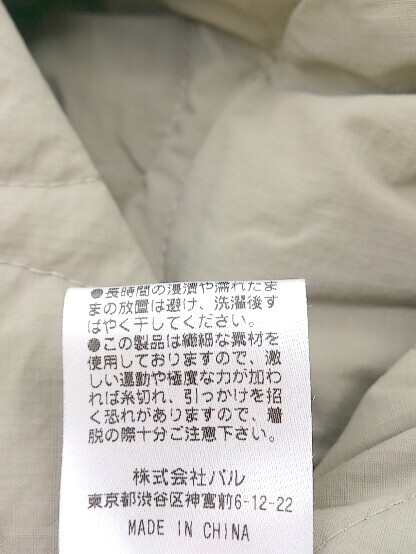 ●長時間の浸漬や濡れたま
まの放置は避け、洗濯後す
ばやく干してください。
●この製品は繊細な素材を
使用しておりますので、激
しい運動や極度な力が加わ
れば糸切れ、引っかけを招
く恐れがありますので、着
脱の際十分ご注意下さい。
株式会社パル
東京都渋谷区神宮前6-12-22
MADE IN CHINA